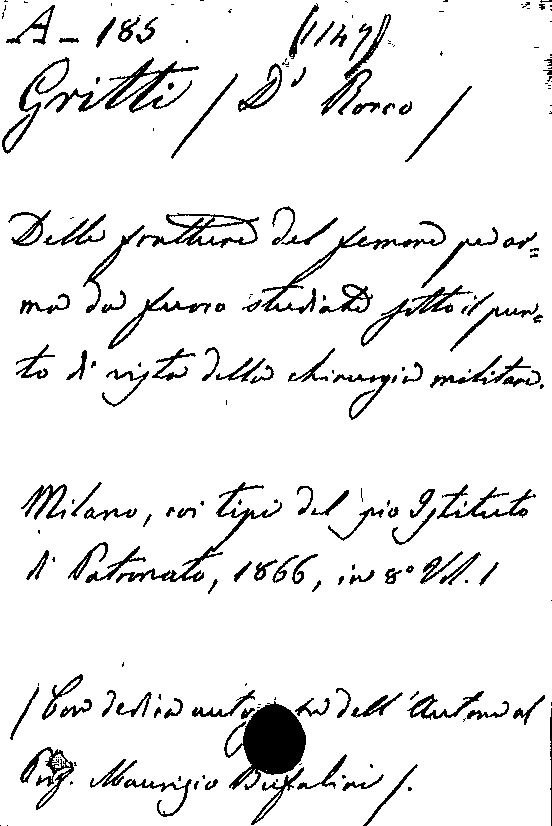 A - 185 (1147)
Gritti / Dr Rocco /
Delle fratture del femore per ar=
ma da fuoco studiate sotto il pun=
to di vista della chirurgia militare.
Milano, coi tipi del pio Istituto
di Patronato, 1866, in 8° Vol. 1
/ Con dedica dell'Autore al
Prof. Maurizio Bufalini /.